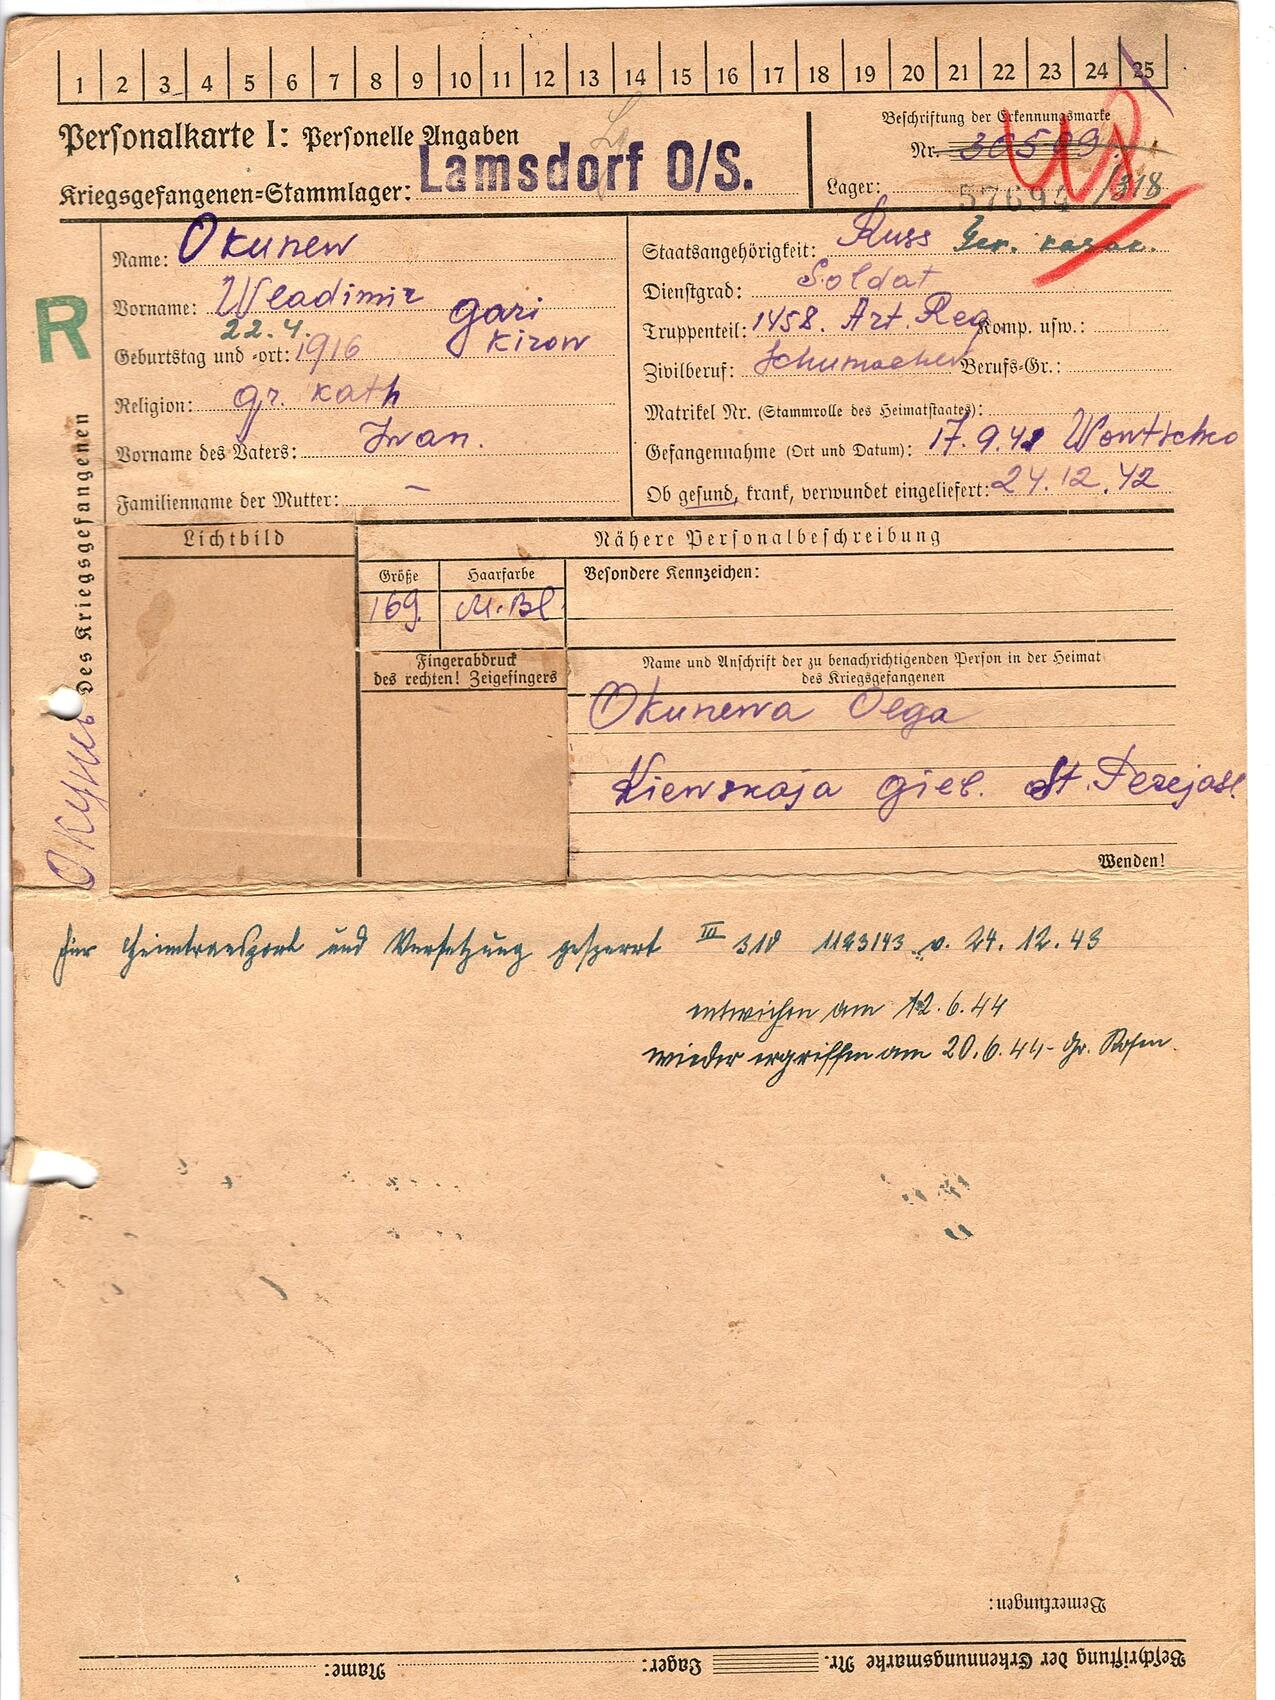 1 2 3 4 5 6 7 8 9 10 11 12 13 14 15 16 17 18 19 20 21 22 23 24 25
Personalkarte I: Personelle Angaben
Kriegsgefangenen-Stammlager: Lamsdorf O/S.
Beschriftung der Erkennungsmarke
Nr. 30509
Lager: 57694 /318
Name: Okunew
Vorname: Wladimir
22.4. gari
Geburtstag und -ort: 1916 Kirow
Religion: gr. kath
Vorname des Vaters: Iwan.
Familienname der Mutter: –
Staatsangehörigkeit: Russ
Dienstgrad: Soldat
Truppenteil: 1458. Art. Reg Komp. usw.:
Zivilberuf: Schumacher Berufs-Gr.:
Matrikel Nr. (Stammrolle des Heimatstaates):
Gefangennahme (Ort und Datum): 17.9.42 Wontschko
Ob gesund, krank, verwundet eingeliefert: 24.12.42
R
des Kriegsgefangenen
Окунев
Lichtbild
Nähere Personalbeschreibung
Größe Haarfarbe Besondere Kennzeichen:
169. M.Bl
Fingerabdruck
des rechten! Zeigefingers
Name und Anschrift der zu benachrichtigenden Person in der Heimat
des Kriegsgefangenen
Okunewa Olga
Kiewskaja gieb. St. Perejasl.
Wenden!
für Heimtransport und Versetzung gesperrt III 318 1123143 v. 24.12.43
entwichen am 12.6.44
wieder ergriffen am 20.6.44 - Gr. Rosen.
Bemerkungen:
Beschriftung der Erkennungsmarke Nr. Lager: Name: